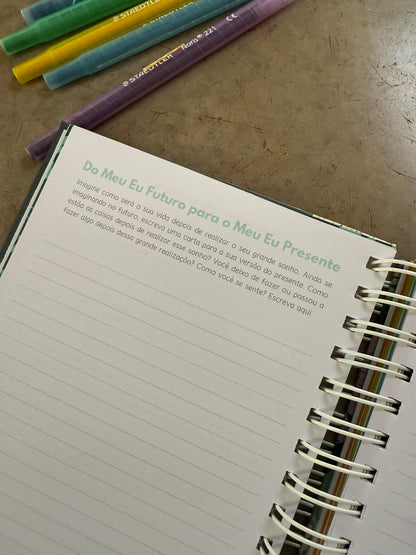 STAEDTLER
STAEDTLER
STAEDTLER Noris® 221 CE
Do Meu Eu Futuro para o Meu Eu Presente
Imagine como será a sua vida depois de realizar o seu grande sonho. Ainda se
imaginando no futuro, escreva uma carta para a sua versão do presente. Como
estão as coisas depois de realizar esse sonho? Você deixou de fazer ou passou a
fazer algo depois dessa grande realização? Como você se sente? Escreva aqui.